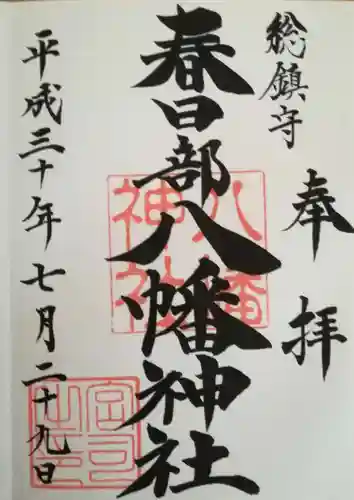 奉拝
総鎮守
春日部八幡神社
八幡神社
平成三十年七月二十九日